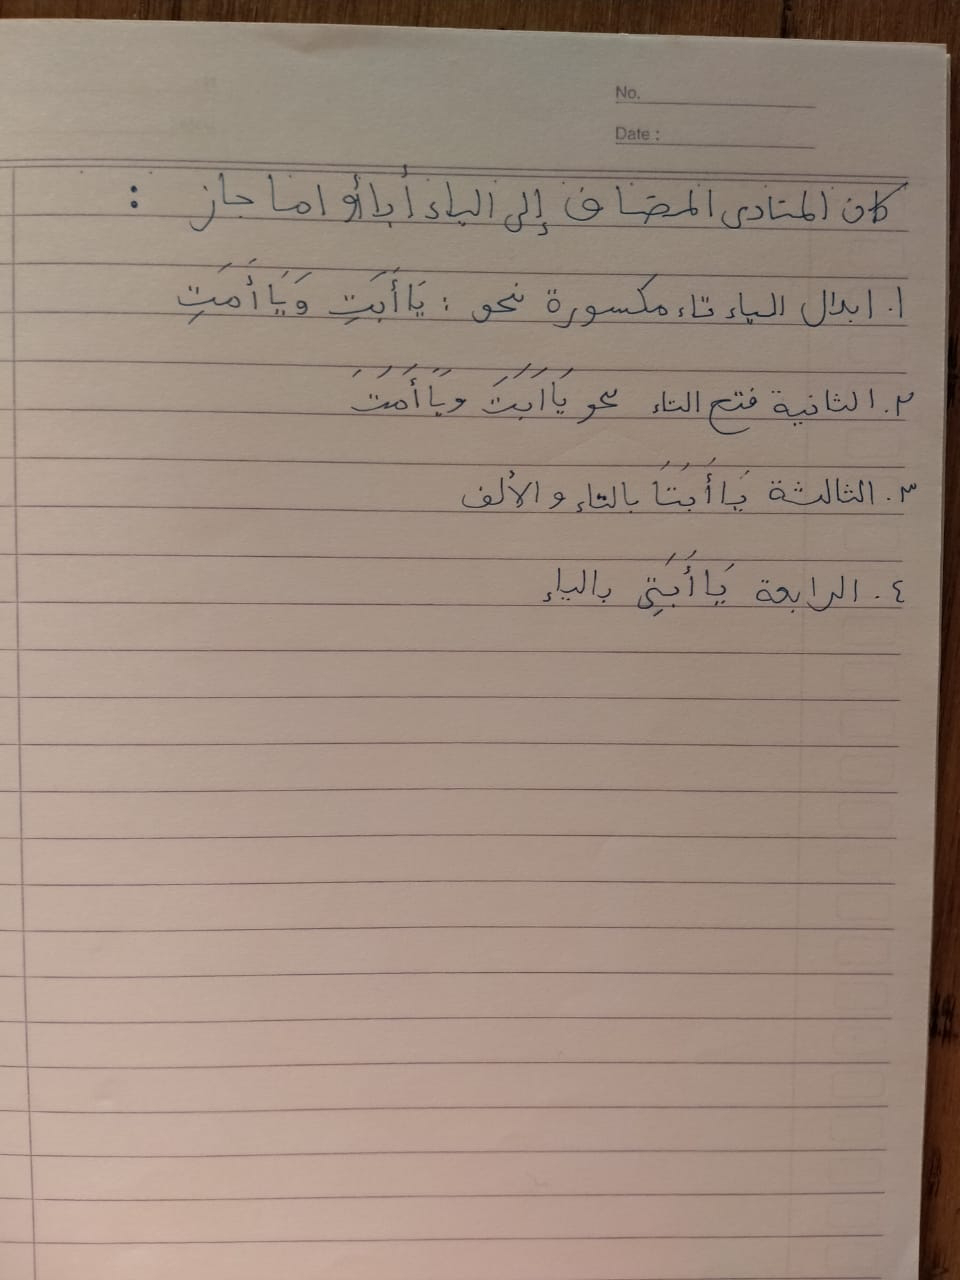 No.
Date :
كان المنادى المضاف إلى الياء أبا أو اما جاز :
١. ابدال الياء تاء مكسورة نحو : يَا أَبَتِ وَيَا أَمَتِ
٢. الثانية فتح التاء نحو يَا اَبَتَ ويَا أَمَتَ
٣. الثالثة يَا أَبَتَا بالتاء و الألف
٤. الرابعة يَا أَبَتِى بالياء